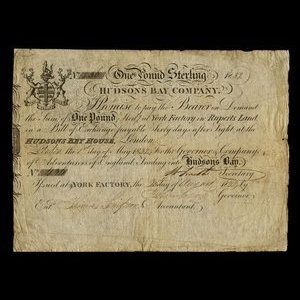 No One Pound Sterling 1832
HUDSONS BAY COMPANY.
I Promise to pay the Bearer on Demand
the Sum of ONE POUND Sterl.g at York Factory in Ruperts Land
in a Bill of Exchange payable Sixty days after Sight at the
HUDSONS BAY HOUSE, London.
London the day of May 1832 For the Governor & Company
of Adventurers of England Trading into Hudsons Bay.
No Secretary
Issued at YORK FACTORY, the day of by
Governor
Ent. Accountant.